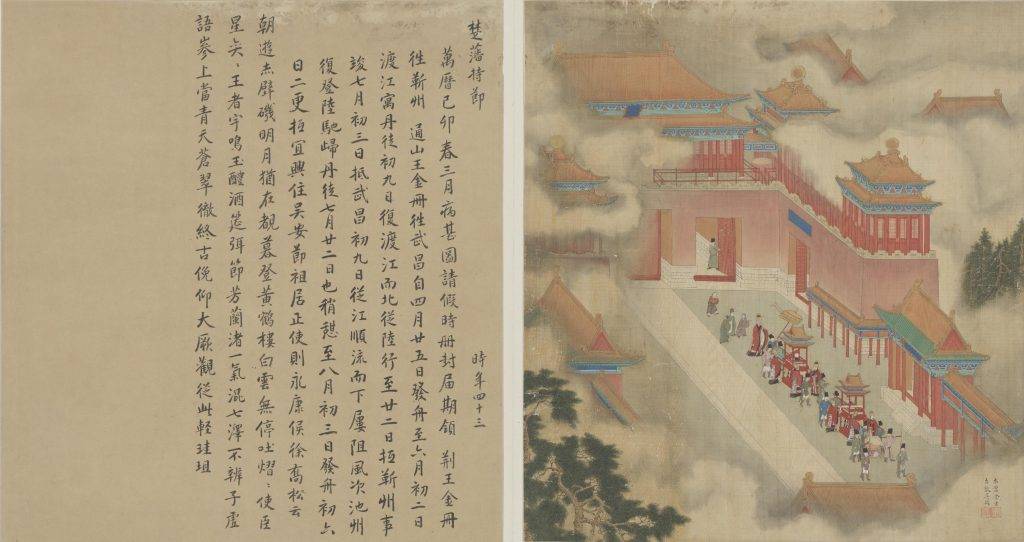 楚藩持節
時年四十三
萬曆己卯春三月病甚圖請假時册封届期領 荆王金冊
徃蘄州 通山王金冊徃武昌自四月廿五日發舟至六月初二日
渡江寓丹徒初九日復渡江而北從陸行至廿二日抵蘄州事
竣七月初三日抵武昌初九日從江順流而下屢阻風次池州
復登陸馳歸丹徒七月廿二日也稍憇至八月初三日發舟初六
日二更抵宜興住吴安節祖居正使則永康侯徐喬松云
朝遊赤壁磯明月猶在覩暮登黄鶴樓白雲無停吐熠〻使臣
星矣〻王者宇鳴玉醴酒筵弭節芳蘭渚一氣混七澤不辨子虛
語嵾上當青天蒼翠徹終古俛仰大厥觀從此輕珪珇